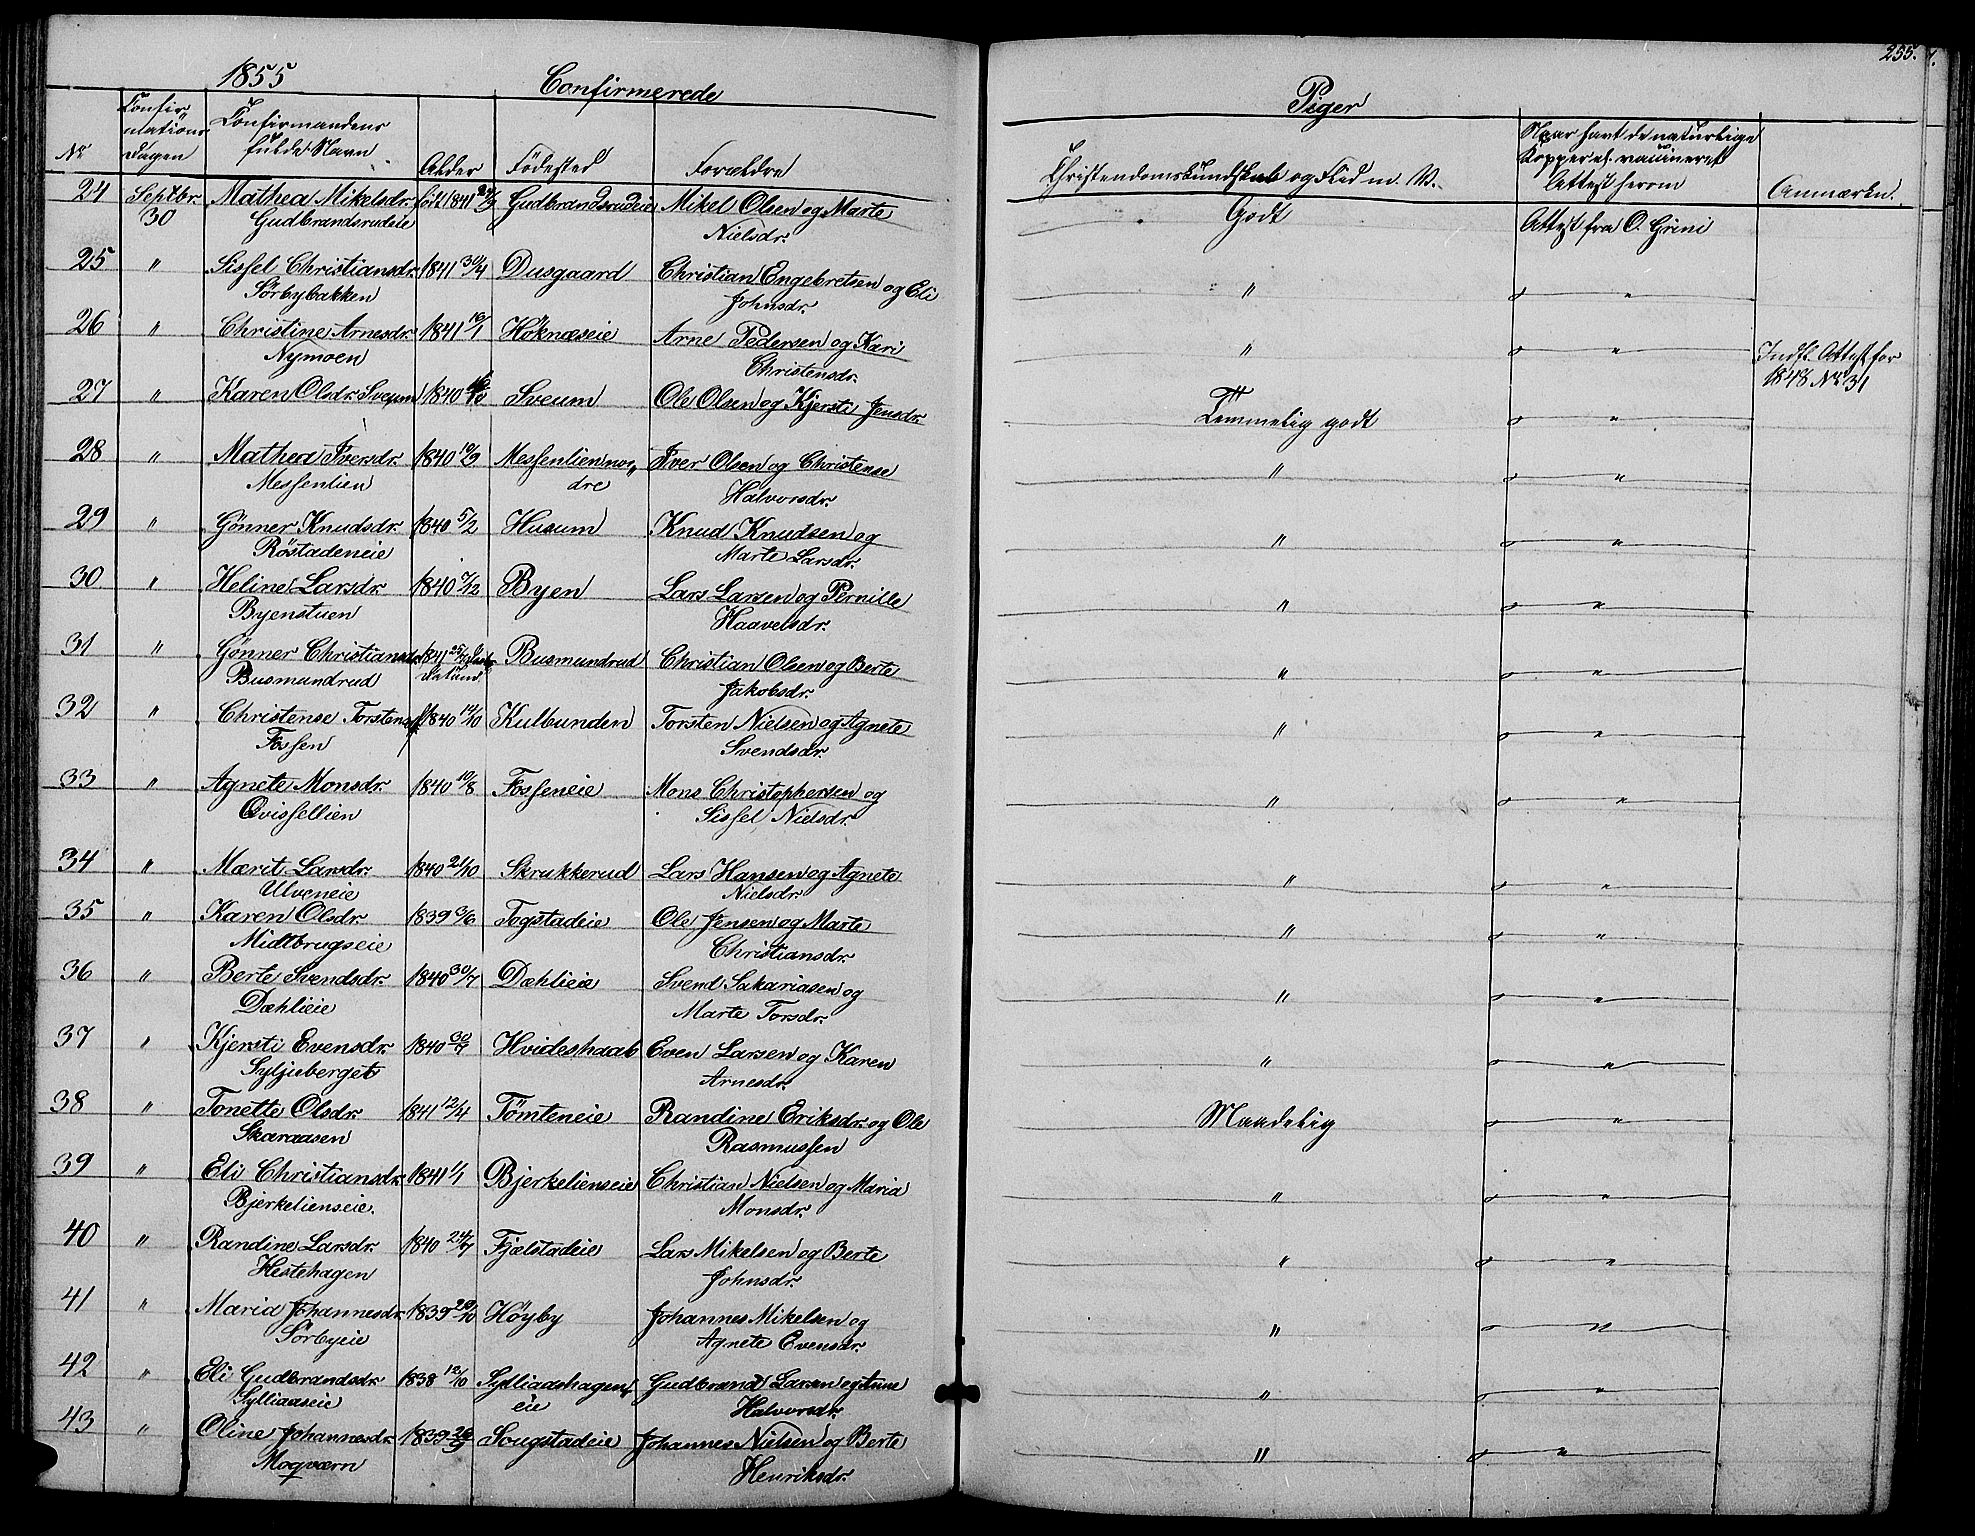 255.
1855 Confirmerede Piger
No Confirmations Dagen Confirmandens fulde Navn Alder Födested Forældre Christendomskundskab og Flid m. V. Naar havt de naturlige Kopper el. vaccineret Attest herom Anmærkn.
24 Septbr. 30 Mathea Mikelsdr. 1841 Gudbrandsrudeie Mikel Olsen og Marte Godt Attest fra O. Grini
Gudbrandsrudeie Nielsdr.
25 " Sissel Christiansdr. 1841 30/4 Dusgaard Christian Engebretsen og Eli " "
Sörbybakken Johnsdr.
26 " Christine Arnesdr. 1841 16/1 Höknæseie Arne Pedersen og Kari " " Indfl. Attest for
Nymoen Christensdr. 1848 No 31
27 " Karen Olsdr. Sveum 1840 Sveum Ole Olsen og Kjersti Jensdr. Temmelig godt "
28 " Mathea Iversdr. 1840 10/9 Messenlien nor„ Iver Olsen og Christense " "
Messenlien dre Halvorsdr.
29 " Gönner Knudsdr. 1840 5/2 Husum Knud Knudsen og " "
Röstadeneie Marte Larsdr.
30 " Heline Larsdr. 1840 Byen Lars Larsen og Pernille " "
Byenstuen Haavelsdr.
31 " Gönner Christiansdr. 1841 Busmundrud Christian Olsen og Berte " "
Busmundrud Jakobsdr.
32 " Christense Torstensdr. 1840 14/10 Kulbunden Torsten Nielsen og Agnete " "
Fossen Svendsdr.
33 " Agnete Monsdr. 1840 10/8 Fosseneie Mons Christophersen og " "
Qvissellien Sissel Nielsdr.
34 " Mærit Larsdr. 1840 21/10 Skrukkerud Lars Hansen og Agnete " "
Ulveneie Nielsdr.
35 " Karen Olsdr. 1839 3/6 Togstadeie Ole Jensen og Marte " "
Midtbrugseie Christiansdr.
36 " Berte Svendsdr. 1840 30/7 Dæhlieie Svend Sakariasen og " "
Dæhlieie Marte Torsdr.
37 " Kjersti Evensdr. 1840 30/7 Hvideshaab Even Larsen og Karen " "
Syljuberget Arnesdr.
38 " Tonette Olsdr. 1841 12/4 Tömteneie Randine Eriksdr. og Ole Maadelig "
Skaraasen Rasmussen
39 " Eli Christiansdr. 1841 1/1 Bjerkelienseie Christian Nielsen og Maria " "
Bjerkelienseie. Monsdr.
40 " Randine Larsdr. 1840 24/7 Fjælstadeie Lars Mikelsen og Berte " "
Hestehagen Johnsdr.
41 " Maria Johannesdr. 1839 29/10 Höyby Johannes Mikelsen og " "
Sörbyeie Agnete Evensdr.
42 " Eli Gudbrandsdr. 1838 12/10 Sylliaashagen„ Gudbrand Larsen og Anne " "
Sylliaaseie eie Halvorsdr.
43 " Oline Johannesdr. 1839 26/9 Sougstadeie Johannes Nielsen og Berte " "
Moqværn Henriksdr.